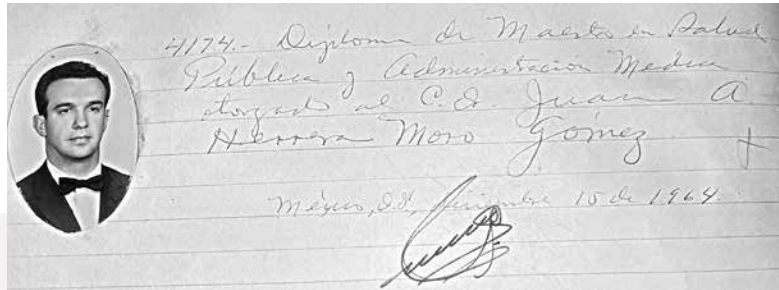 4174.- Diploma de Maestro en Salud
Pública y Administración Medica
otorgado al C. Dr. Juan A.
Herrera Moro Gómez
México, D.F., Diciembre 15 de 1964.